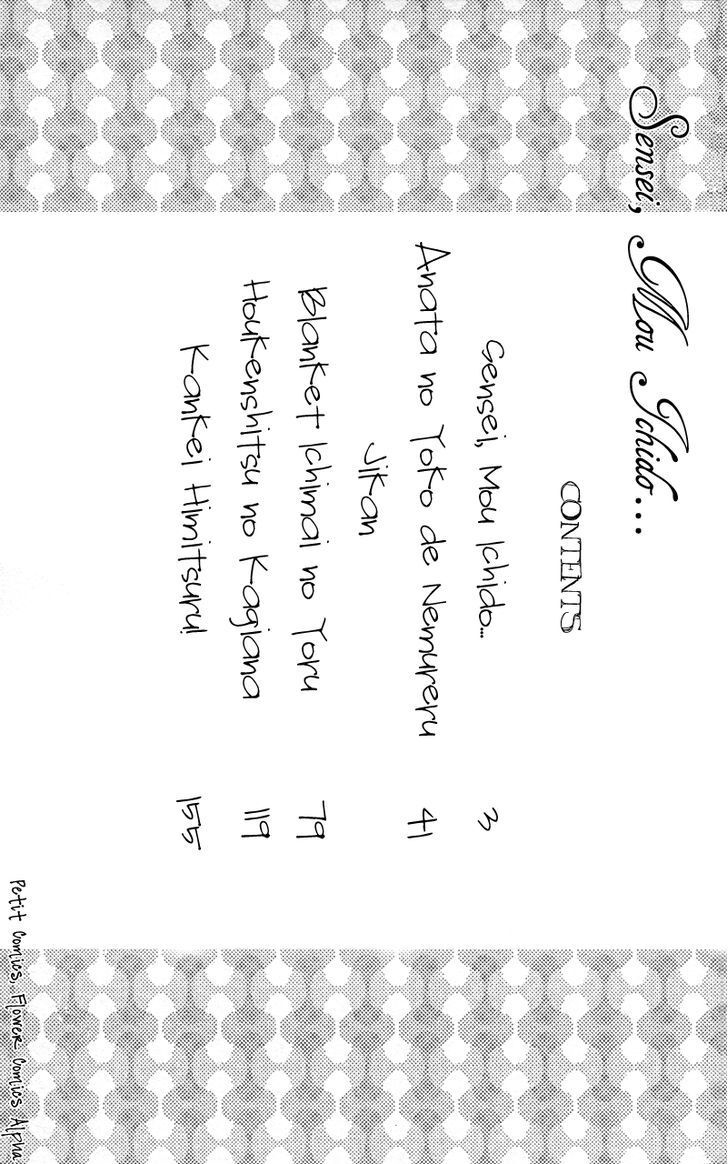 Sensei, Mou Ichido...
CONTENTS
Sensei, Mou Ichido... 3
Anata no Yoko de Nemureru 41
Jikan
Blanket Ichimai no Yoru 79
Houkenshitsu no Kagiana 119
Kankei Himitsuru! 155
Petit Comics, Flower Comics Alpha